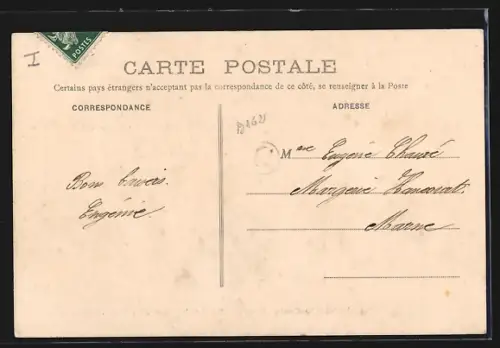 POSTES
I
CARTE POSTALE
Certains pays étrangers n'acceptant pas la correspondance de ce côté, se renseigner à la Poste
CORRESPONDANCE
ADRESSE
Mme Eugénie
Margerie Hancourt.
Marne
Bons baisers.
Eugénie